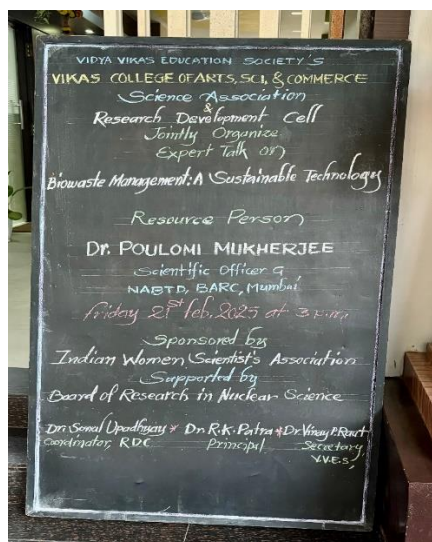 VIDYA VIKAS EDUCATION SOCIETY'S
VIKAS COLLEGE OF ARTS, SCI, & COMMERCE
Science Association
&
Research Development Cell
Jointly Organize
Expert Talk on
Biowaste Management: A Sustainable Technology
Resource Person
Dr. POULOMI MUKHERJEE
Scientific Officer G
NABTD, BARC, Mumbai
Friday 21st Feb, 2025 at 3 p.m.
Sponsored by
Indian Women Scientist's Association
Supported by
Board of Research in Nuclear Science
Dr. Sonal Upadhyay * Dr. R.K. Patra * Dr. Vinay P. Raut
Coordinator, RDC Principal Secretary
V.V.E.S,